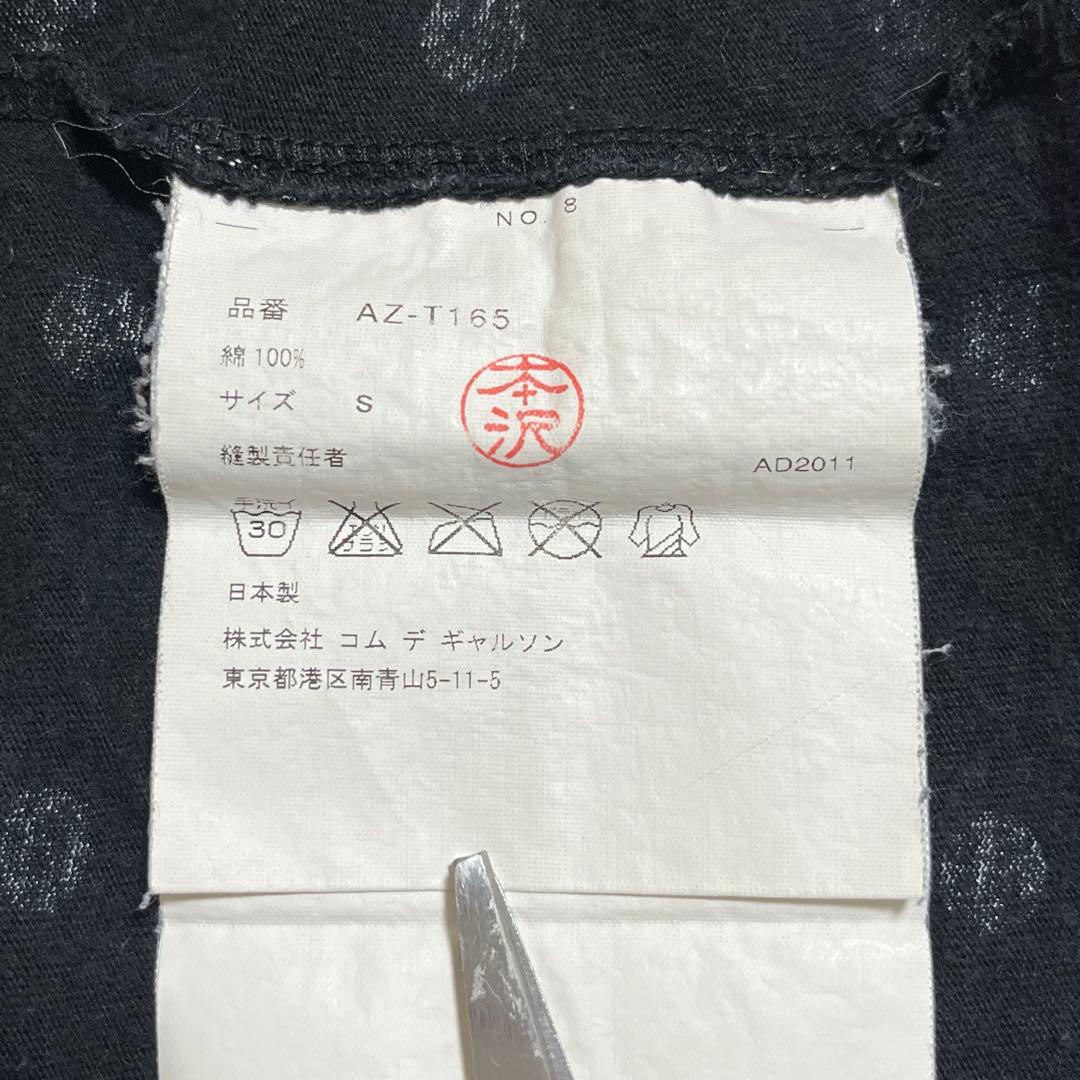 NO. 8
品番 AZ-T165
綿 100%
サイズ S
本沢
縫製責任者 AD2011
手洗イ
30
エンソ
日本製
株式会社 コム デ ギャルソン
東京都港区南青山5-11-5